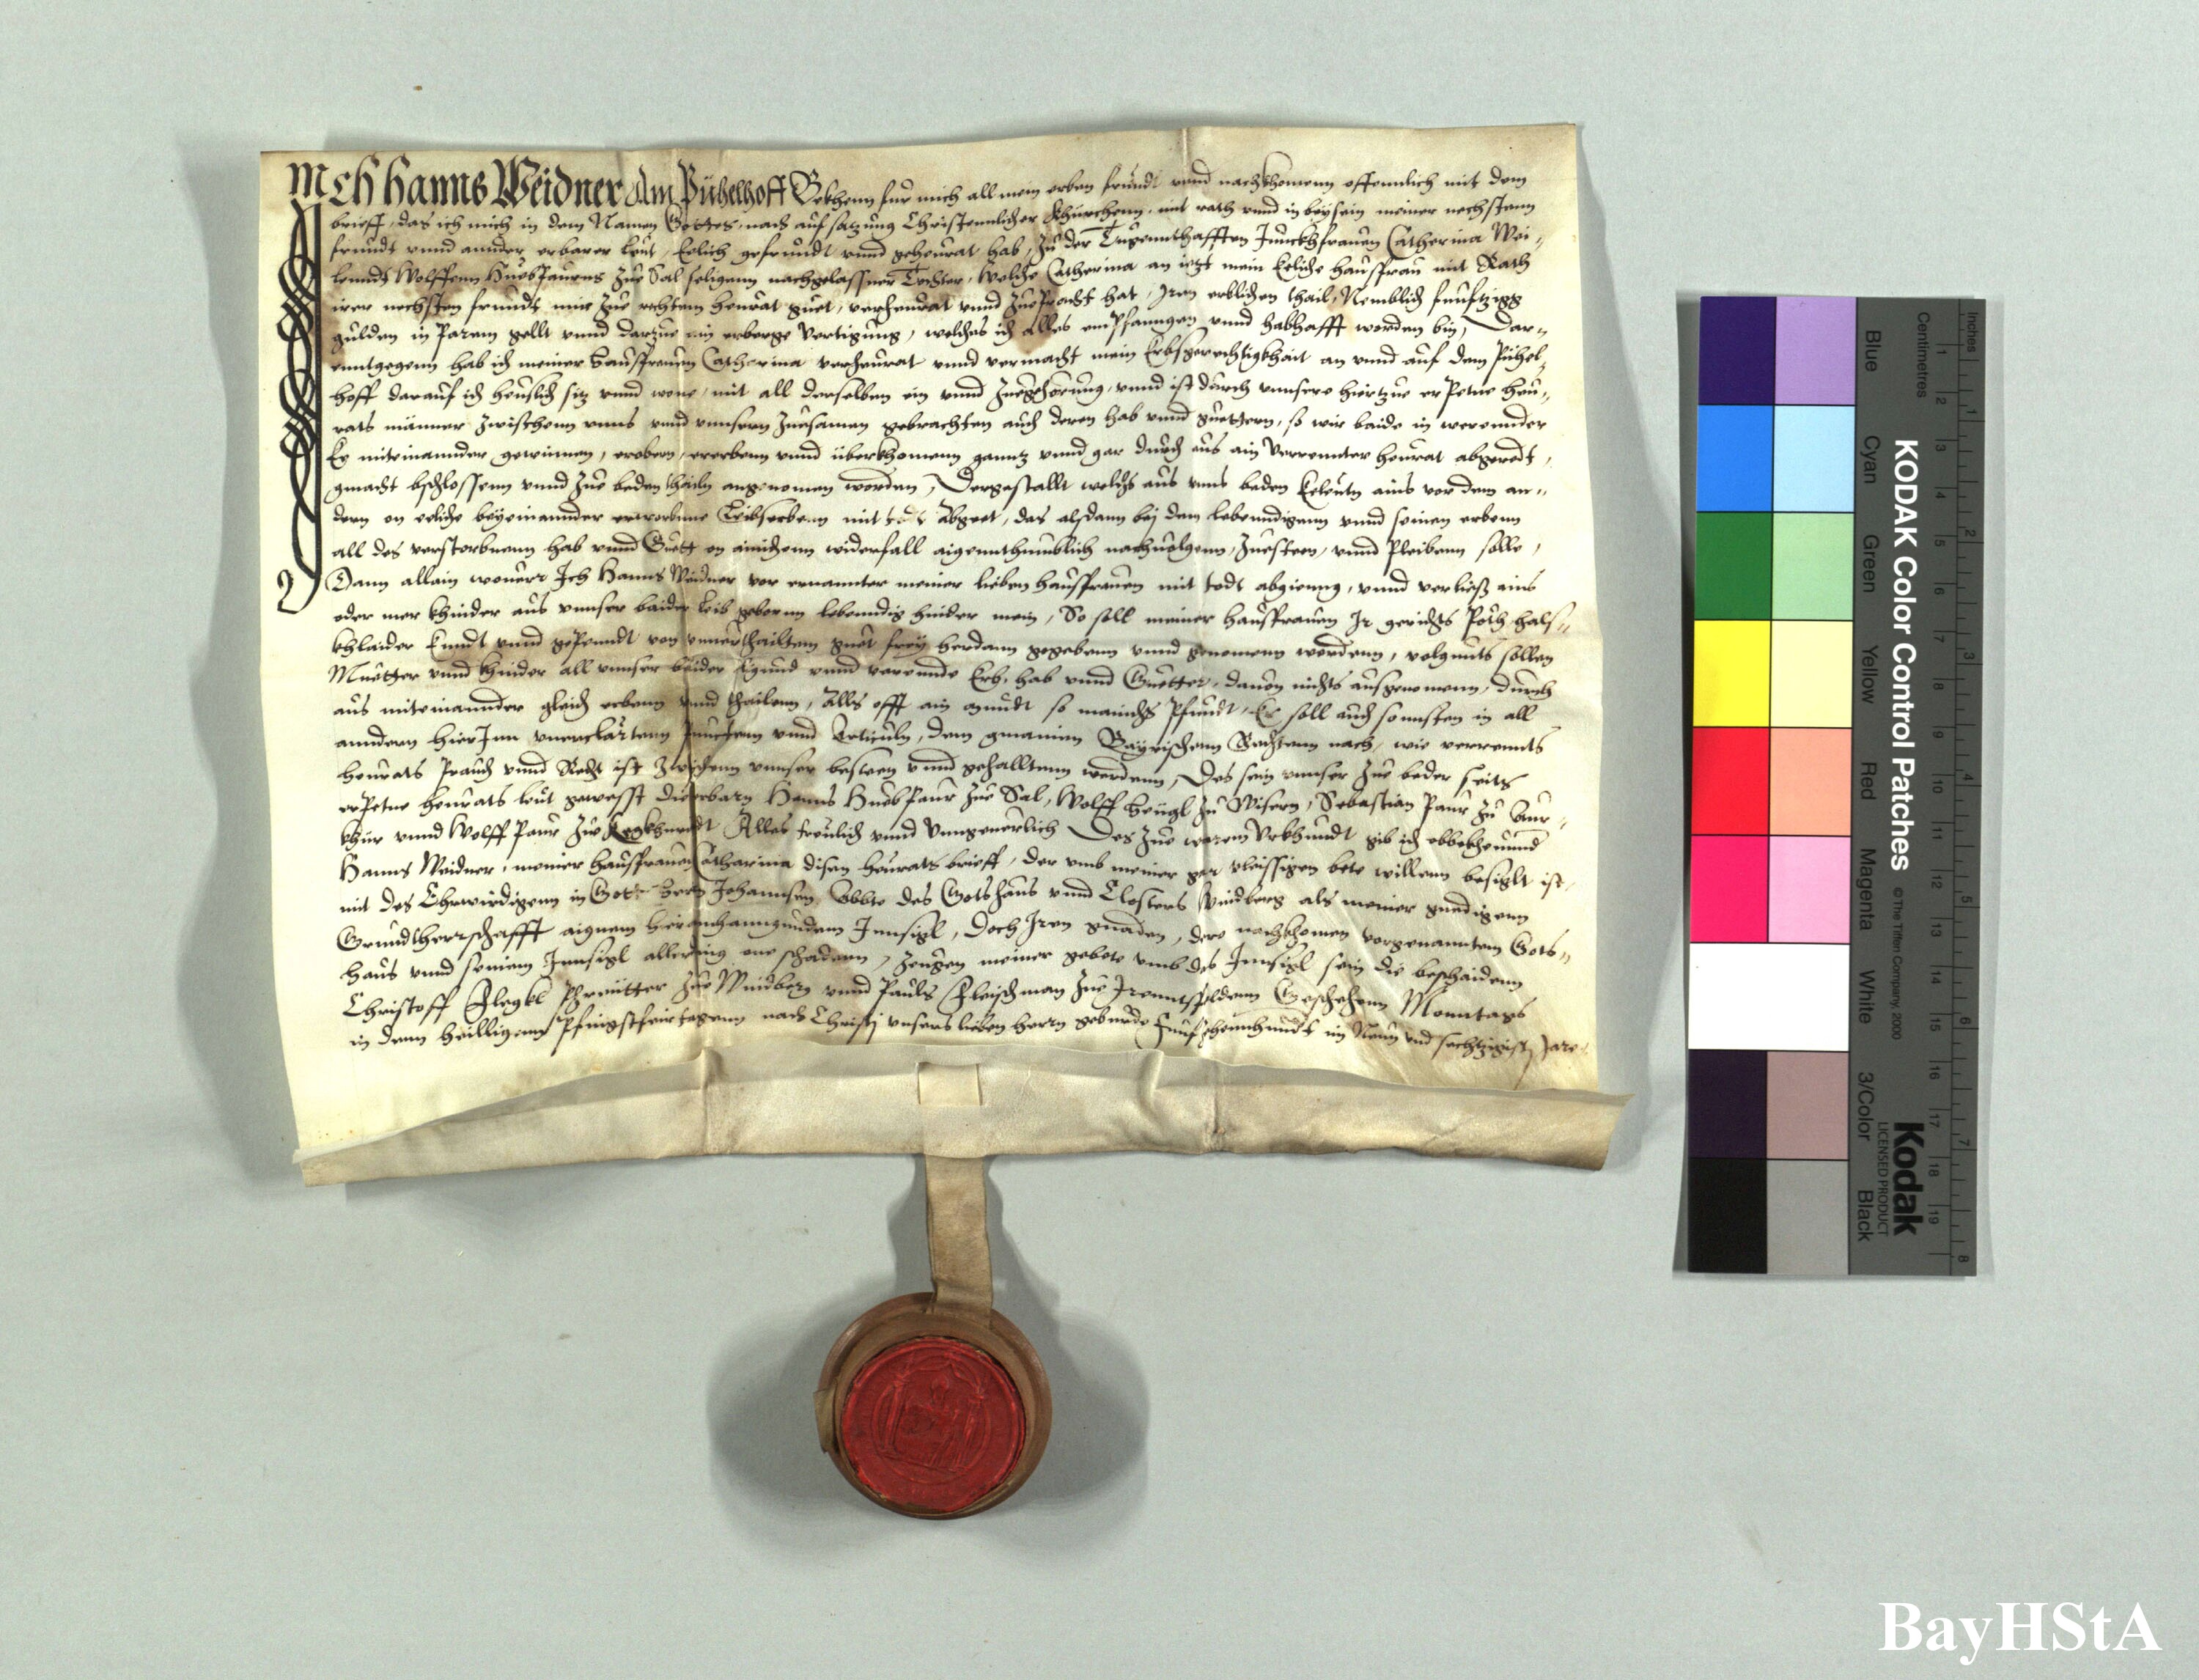 Ich Hanns Weidner Am Pühelhoff Bekhenn für mich all mein erben freundt vnnd nachkhomenn offennlich mit dem
brieff, das ich mich in dem Namen Gottes, nach aufsatzung Christennlicher Khürchenn, mit rath vnnd in beysein meiner nechstenn
freundt vnnd annder erbarer leüt, Eelich gefreundt vnnd geheurat hab, zu der Tugennthafften Junckhfrauen Catherina Wei-
lenndt Wolffenn Huebpaurns zue Sal seligenn nachgelassner Tochter, Welche Catherina an ietzt mein Eeliche hausfrau mit Rath
irer nechsten freundt mir zue rechtem heurat guet, verheurat vnnd zuepracht hat, Iren erblichen thail, Nemblich funftzigg
gulden in Parem gellt vnnd darzue ein erberge Vertigung, welches ich alles empfanngen vnnd habhafft worden bin, Dar-
enntgegenn hab ich meiner hausfrauen Catherina verheurat vnnd vermacht mein Erbsgerechtigkhait an vnnd auf dem Pühel-
hoff darauf ich heuslich sitz vnnd wone, mit all derselben ein vnnd Zuegehörung, vnnd ist durch vnnsere hiertzue erPetne heu-
rats männer zwischenn vnns vnnd vnnsern zuesamen gebrachten auch deren hab vnnd guettern, so wir baide in werennder
Ee miteinannder gewinnen, erobern, ererbenn vnnd überkhomenn ganntz vnnd gar durch aus ain Verrennter heurat abgeredt,
gmacht bschlossenn vnnd zue beden thailn angenomen worden, Dergestallt welchs aus vnns beden Eeleutn ains vor dem an-
dern on eeliche beyeinannder erworbene Leibserbenn mit todt Abgeet, das alsdann bej dem lebenndigenn vnnd seinen erbenn
all des verstorbnenn hab vnnd Guett on ainichenn widerfall aigennthumblich nachuolgenn, Zuesteen, vnnd Pleibenn solle,
Dann allain wouerr Ich Hanns Weidner vor ernannter meiner lieben hausfrauen mit todt abgienng, vnnd verließ ains
oder mer khinder aus vnnser baider leib geborn lebenndig hinder mein, So soll meiner hausfrauen Ir gerichts Peth hals-
khlaider Enndt vnnd gepenndt von vnuerthailtem guet frey herdann gegebenn vnnd genomenn werdenn, volgennts sollen
Muetter vnnd khinder all vnnser baider ligund vnnd varennde Erb, hab vnnd Guetter, dauon nichts ausgenomenn, durch
aus miteinannder gleich erbenn vnnd thailenn, Alls offt ain mundt so manichs Pfundt, Es soll auch sonnsten in all
anndern hierInn vnerclärtenn Punctenn vnnd Articuln, dem gmainen Bayrischenn Rechtenn nach, wie verrennts
heurats Prauch vnnd Recht ist Zwischenn vnnser besteen vnnd gehalltenn werdenn, Des sein vnnser zue beder seits
erPetne heurats leut gewesst die erbarn Hanns HuebPaur zue Sal, Wolff Heugl zu Wisern, Sebastian Paur zu Aur-
khür vnnd Wolff Paur zue Alles treulich vnnd Vnngeuerlich Des zue warem Vrkhundt gib ich obbekhennund
Hanns Weidner, meiner hausfrauen Catharina disen heurats brieff, der vmb meiner gar vleissigen bete willenn besiglt ist,
mit des Ehrwirdigenn in Gott herrn Johannsen Abbte des Gotshaus vnnd Closters Windberg als meiner gnedigenn
Grundtherrschafft aignem hieranhanngundem Innsigl, Doch Iren gnaden, dero nachkhomen vorgenanntem Gots-
haus vnnd seinem Innsigl allerding one schadenn, Zeugen meiner gebete vmb des Innsigl sein die beschaidenn
Christoff Flegkl Schreutter zue Windberg vnnd Pauls Fleischman zue Irenntsfeldenn Geschehenn Monntags
in denn heilligenn Pfingstfeirtagenn nach Christj vnsers lieben herrn geburde Funfzehennhundt im Neun vnd sechtzigistn Jare
Inches
Centimetres
KODAK Color Control Patches
© The Tiffen Company, 2000
Blue
Cyan
Green
Yellow
Red
Magenta
White
3/Color
Black
Kodak
LICENSED PRODUCT
BayHStA